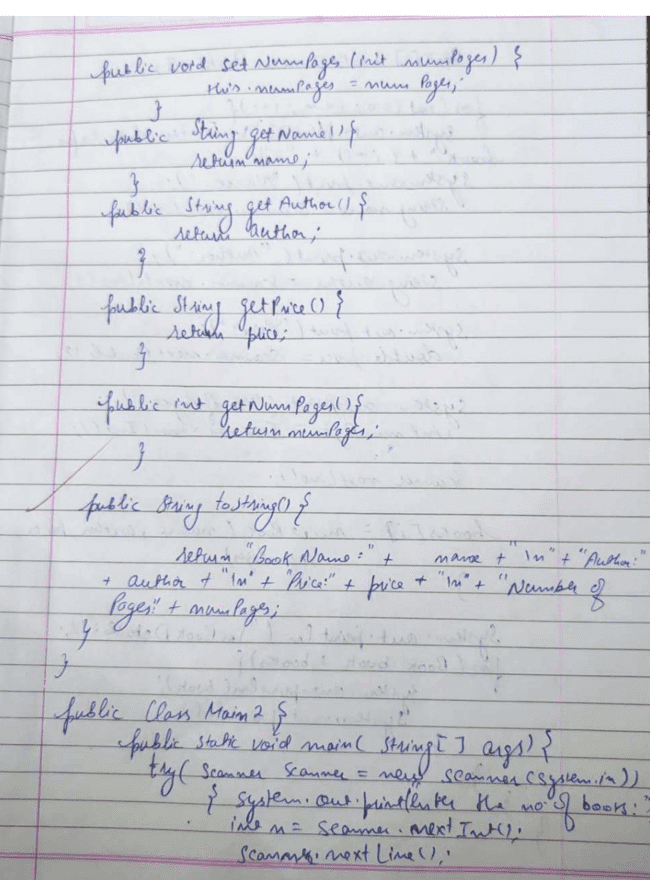 public void setNumPages (int numPages) {
this.numPages = numPages;
}
public String getName() {
return name;
}
public String getAuthor() {
return author;
}
public String getPrice() {
return price;
}
public int getNumPages() {
return numPages;
}
public String tostring() {
return "Book Name:" + name + "\n" + "Author:"
+ author + "\n" + "Price:" + price + "\n" + "Number of
Pages:" + numPages;
}
}
public Class Main2 {
public static void main( String[] args) {
try( Scanner Scanner = new scanner (system.in))
{ system.out.print("Enter the no of books:"
int n = scanner.nextInt();
scanner.nextLine();